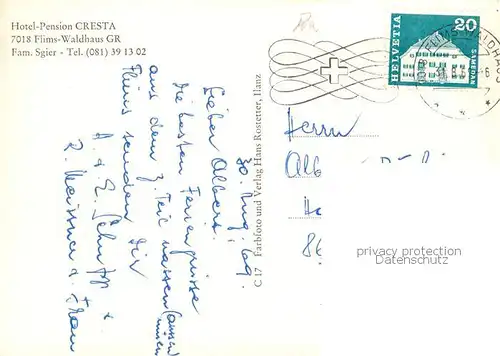 Hotel-Pension CRESTA
7018 Flims-Waldhaus GR
Fam. Sgier - Tel. (081) 39 13 02
C 17 Farbfoto und Verlag Hans Rostetter, Ilanz
30. Aug. 69.
Lieber Albert.
Die besten Feriengrüsse
aus dem z. Teil nassen (aussen
Flims senden Dir
HELVETIA
20
SAMEDAN
FLIMS-WALDHAUS
Herrn
Alb
86
privacy protection
Datenschutz